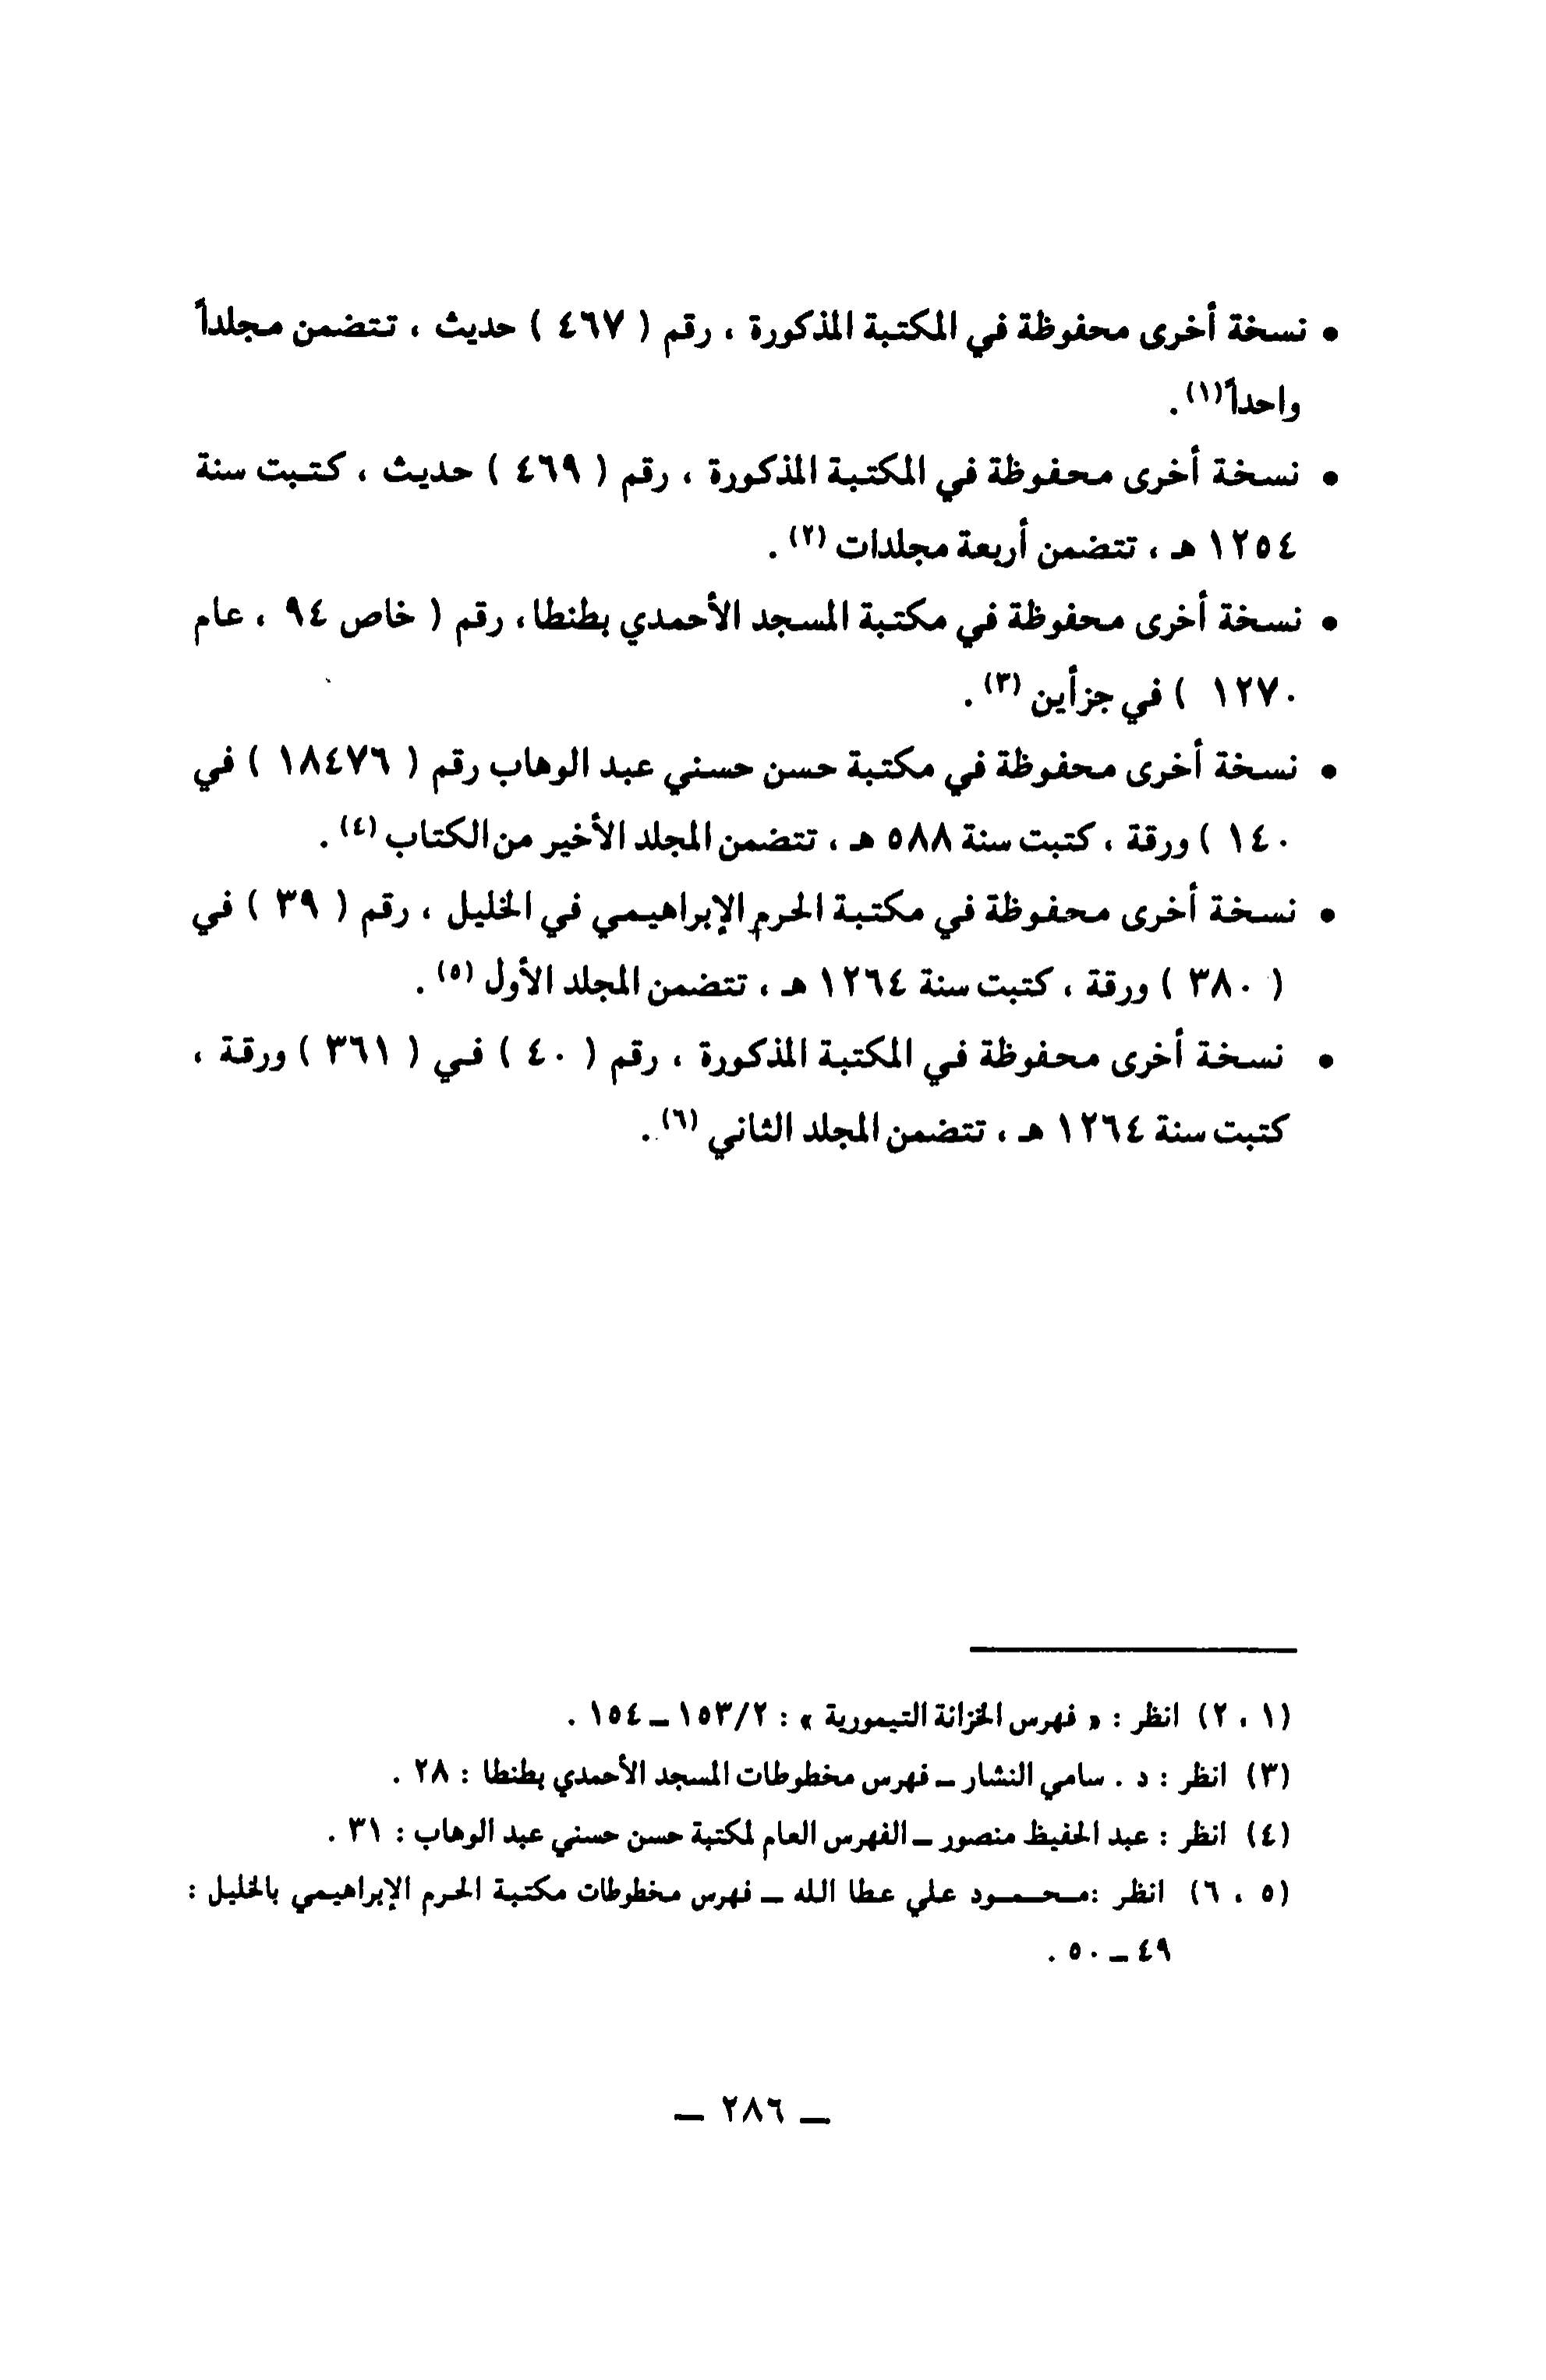 • نسخة أخرى محفوظة في المكتبة المذكورة ، رقم ( ٤٦٧ ) حديث ، تتضمن مجلداً
واحداً(١) .
• نسخة أخرى محفوظة في المكتبة المذكورة ، رقم ( ٤٦٩ ) حديث ، كتبت سنة
١٢٥٤ هـ ، تتضمن أربعة مجلدات (٢) .
• نسخة أخرى محفوظة في مكتبة المسجد الأحمدي بطنطا ، رقم ( خاص ٩٤ ، عام
١٢٧٠ ) في جزأين (٣) .
• نسخة أخرى محفوظة في مكتبة حسن حسني عبد الوهاب رقم ( ١٨٤٧٦ ) في
١٤٠ ) ورقة ، كتبت سنة ٥٨٨ هـ ، تتضمن المجلد الأخير من الكتاب (٤) .
• نسخة أخرى محفوظة في مكتبة الحرم الإبراهيمي في الخليل ، رقم ( ٣٩ ) في
( ٣٨٠ ) ورقة ، كتبت سنة ١٢٦٤ هـ ، تتضمن المجلد الأول (٥) .
• نسخة أخرى محفوظة في المكتبة المذكورة ، رقم ( ٤٠ ) في ( ٣٦١ ) ورقة ،
كتبت سنة ١٢٦٤ هـ ، تتضمن المجلد الثاني (٦) .
(١ ، ٢) انظر : « فهرس الخزانة التيمورية » : ٢/١٥٣ – ١٥٤ .
(٣) انظر : د . سامي النشار – فهرس مخطوطات المسجد الأحمدي بطنطا : ٢٨ .
(٤) انظر : عبد الحفيظ منصور – الفهرس العام لمكتبة حسن حسني عبد الوهاب : ٣١ .
(٥ ، ٦) انظر :محمود علي عطا الله – فهرس مخطوطات مكتبة الحرم الإبراهيمي بالخليل :
٤٩ – ٥٠ .
– ٢٨٦ –